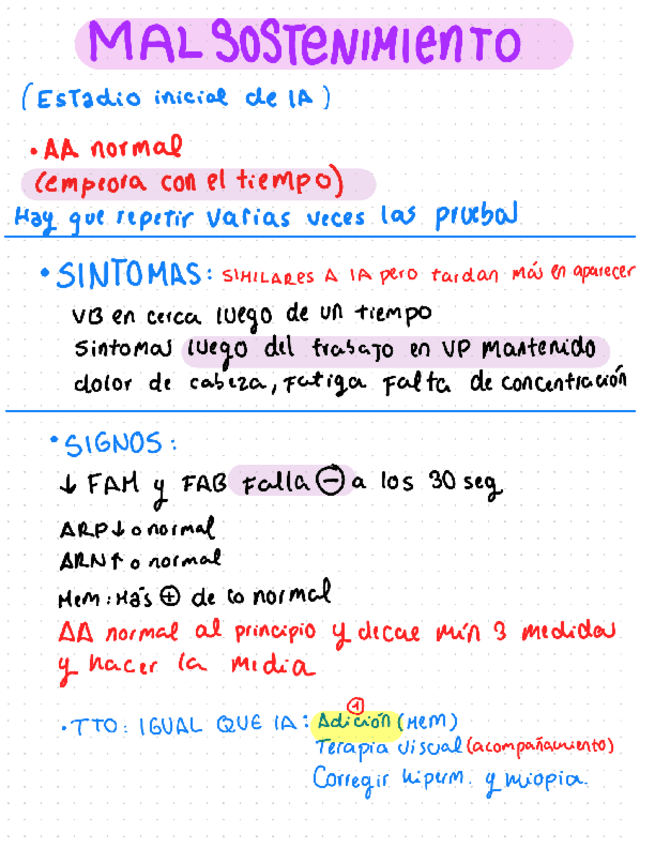 MAL SOSTENIMIENTO
(Estadio inicial de IA)
• AA normal
(empeora con el tiempo)
Hay que repetir varias veces las pruebas
• SINTOMAS: SIMILARES A IA pero tardan más en aparecer
VB en cerca luego de un tiempo
Sintomas luego del trabajo en VP mantenido
dolor de cabeza, Fatiga Falta de concentración
• SIGNOS:
↓ FAM y FAB Falla ⊖ a los 30 seg
ARP ↓ o normal
ARN ↑ o normal
Mem: Más ⊕ de lo normal
AA normal al principio y decae mín 3 medidas
y hacer la media
①
• TTO: IGUAL QUE IA: Adición (MEM)
Terapia visual (acompañamiento)
Corregir hiperm. y miopia.